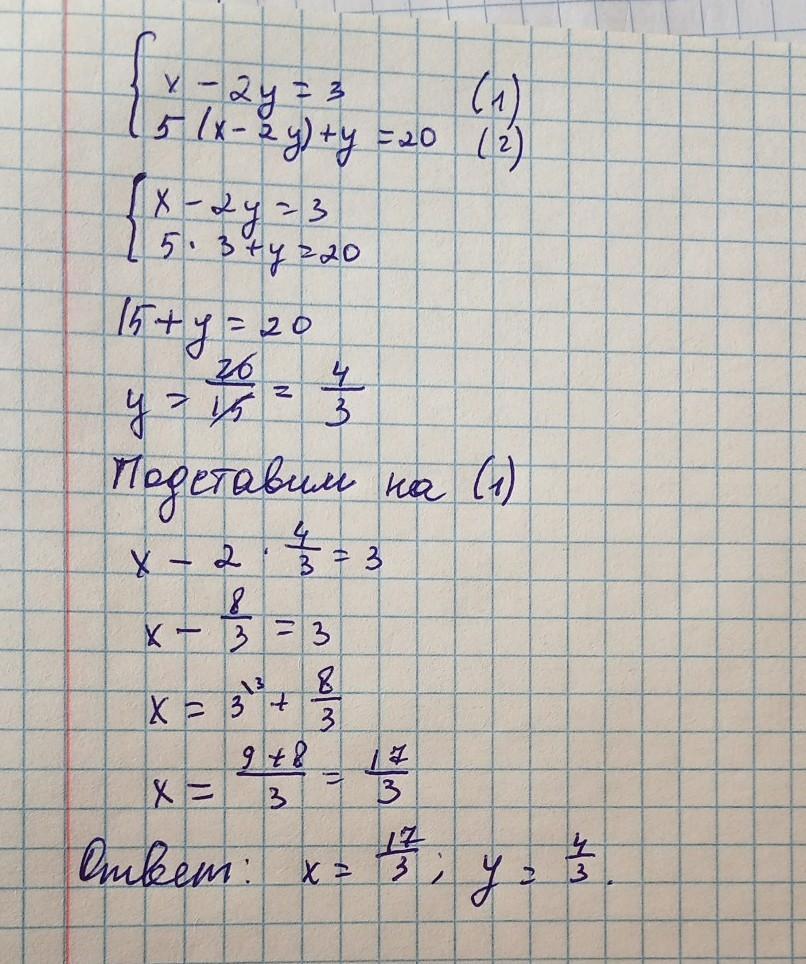 x - 2y = 3 (1)
5 (x - 2y) + y = 20 (2)
x - 2y = 3
5 · 3 + y = 20
15 + y = 20
y = 20/15 = 4/3
Подставим на (1)
x - 2 · 4/3 = 3
x - 8/3 = 3
x = 3^3 + 8/3
x = 9+8/3 = 17/3
Ответ: x = 17/3; y = 4/3.